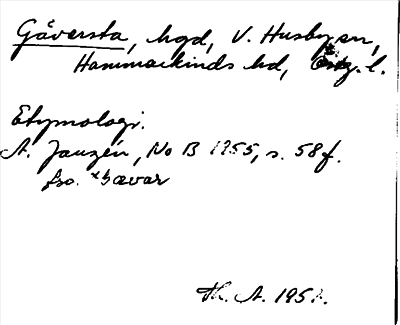 Gåversta, hgd, V. Husby sn,
Hammarkinds hd, Ög. l.
Etymologi.
A. Janzén, No B 1955, s. 58 f.
fsv. *Gævar
Th. A. 195